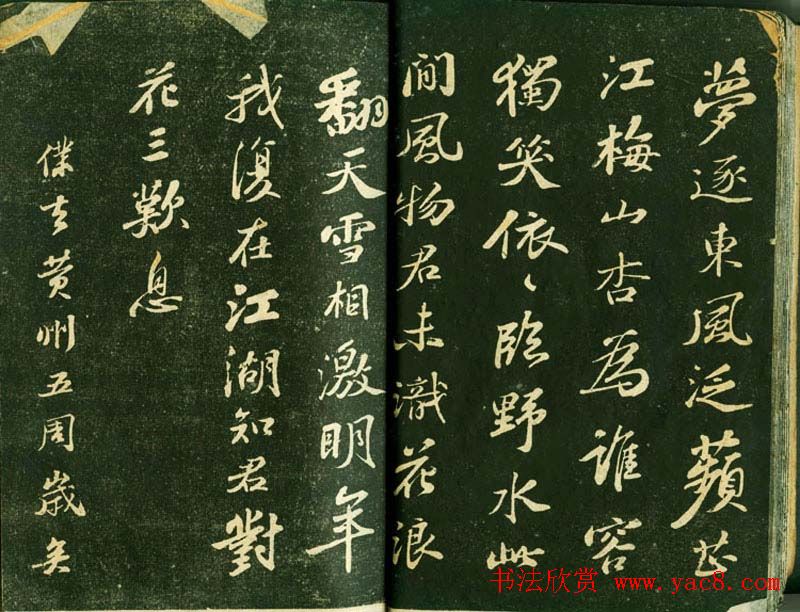 夢逐東風泛蘋芷
江梅山杏為誰容
獨笑依〻臨野水此
間風物君未識花浪
翻天雪相激明年
我復在江湖知君對
花三歎息
僕去黄州五周歲矣
书法欣赏 www.yac8.com